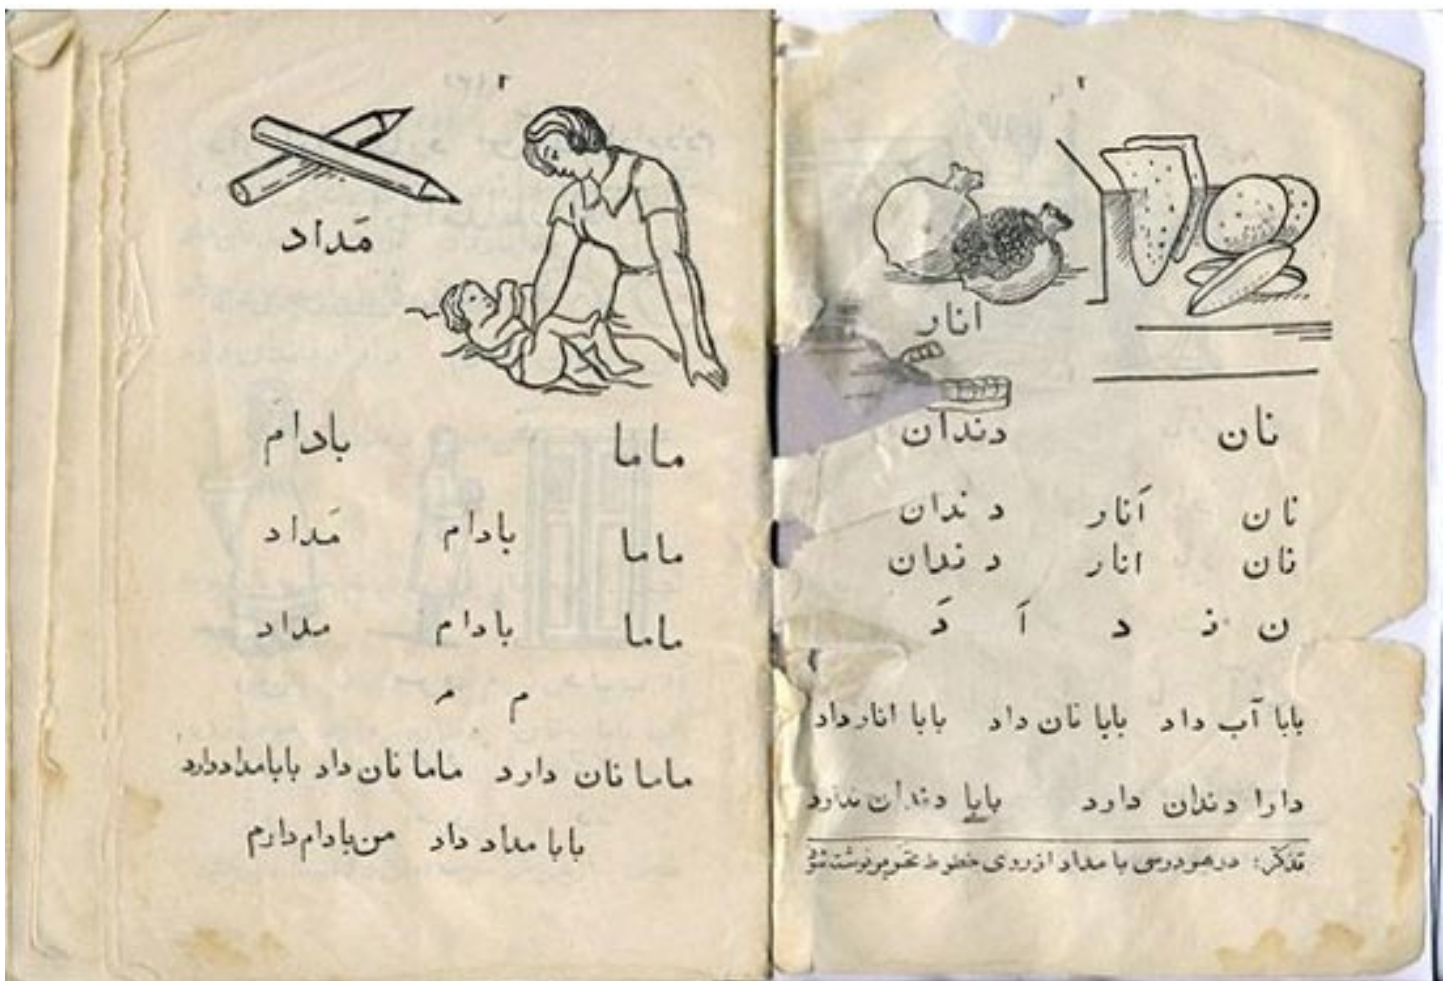 ۲
انار
نان دندان
نان اَنار دندان
نان انار دندان
ن نـ د اَ دَ
بابا آب داد بابا نان داد بابا انار داد
دارا دندان دارد بابا دندان ندارد
تذکر: در هر درسی با مداد از روی خطوط
مَداد
ماما بادام
ماما بادام مَداد
ماما بادام مداد
م مـ
ماما نان دارد ماما نان داد بابا مداد دارد
بابا مداد داد من بادام دارم